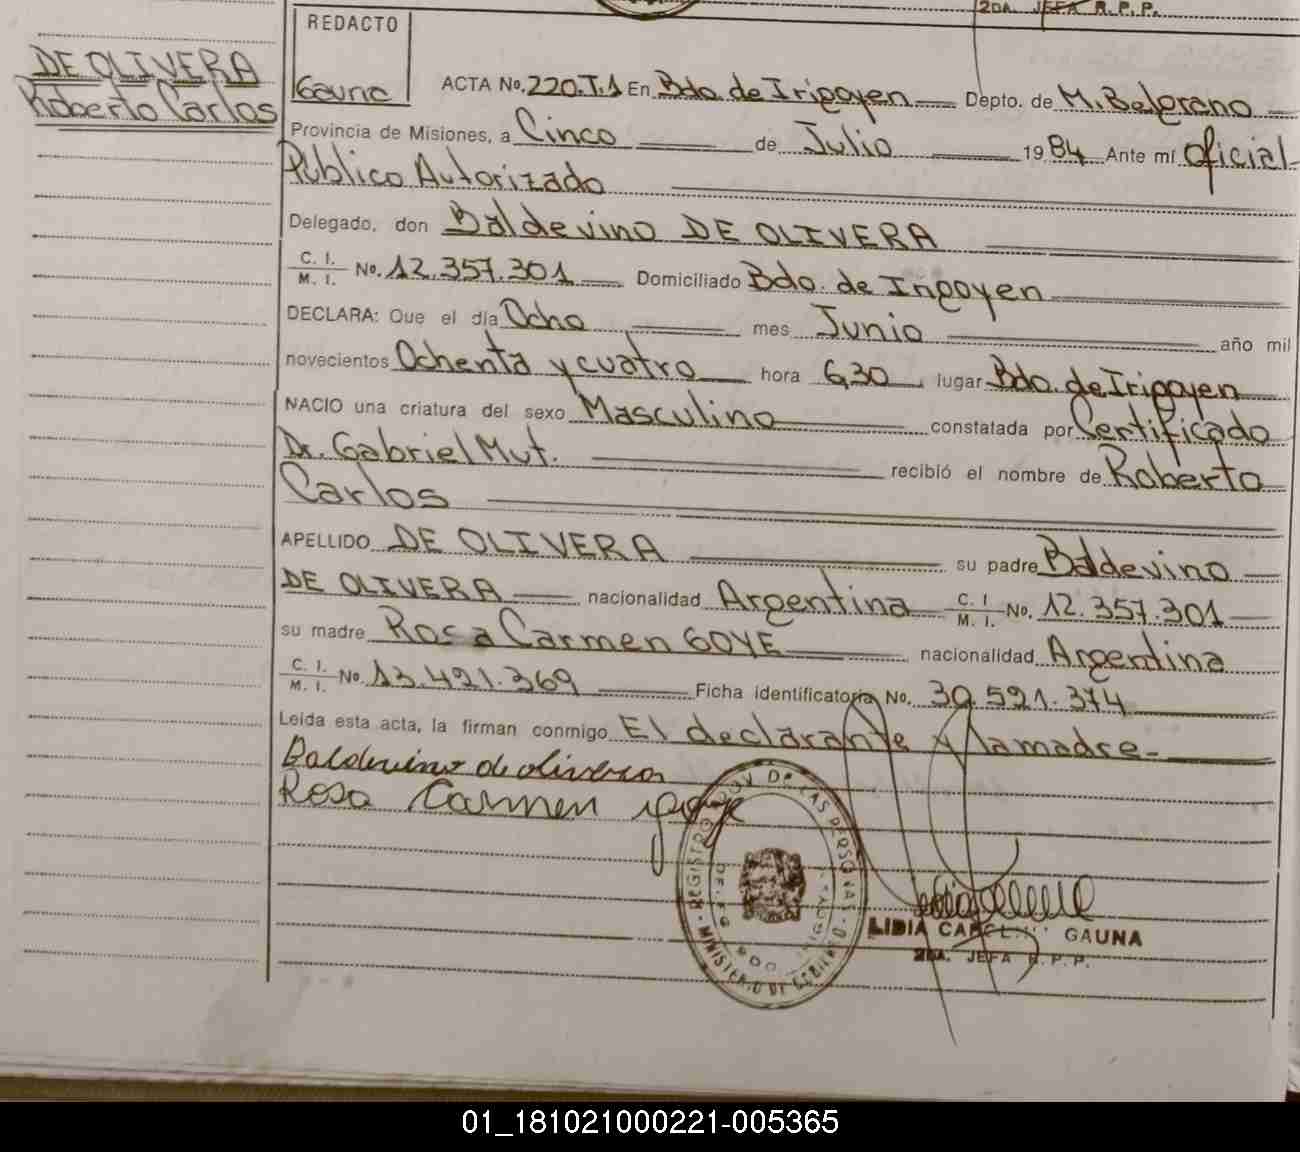 2DA. JEFA R.P.P.
REDACTO
Gauna
DE OLIVERA
Roberto Carlos
ACTA No. 220.T.1 En Bdo. de Irigoyen Depto. de M. Belgrano
Provincia de Misiones, a Cinco de Julio 1984 Ante mí Oficial
Público Autorizado
Delegado, don Baldevino DE OLIVERA
C. I. / M. I. No. 12.357.301 Domiciliado Bdo. de Irigoyen
DECLARA: Que el día Ocho mes Junio año mil
novecientos Ochenta y cuatro hora 6,30 lugar Bdo. de Irigoyen
NACIO una criatura del sexo Masculino constatada por Certificado
Dr. Gabriel Mut. recibió el nombre de Roberto
Carlos
APELLIDO DE OLIVERA su padre Baldevino
DE OLIVERA nacionalidad Argentina C. I. / M. I. No. 12.357.301
su madre Rosa Carmen GOYE nacionalidad Argentina
C. I. / M. I. No. 13.421.369 Ficha identificatoria No. 30.591.374
Leída esta acta, la firman conmigo El declarante y la madre-
Baldevino de olivera
Rosa Carmen goye
REGISTRO PROV. DE LAS PERSONAS
MINISTERIO DE GOBIERNO
LIDIA GAUNA
2DA. JEFA R.P.P.
01_181021000221-005365